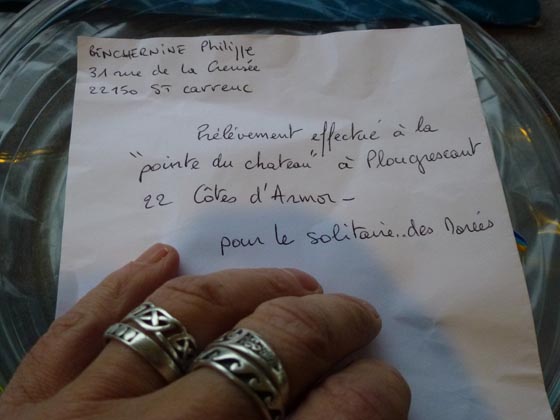 BENCHERNINE Philippe
31 rue de la Creusée
22150 ST Carreuc
Prélèvement effectué à la
"pointe du chateau" à Plougrescant
22 Côtes d'Armor -
pour le solitaire..des Dorées